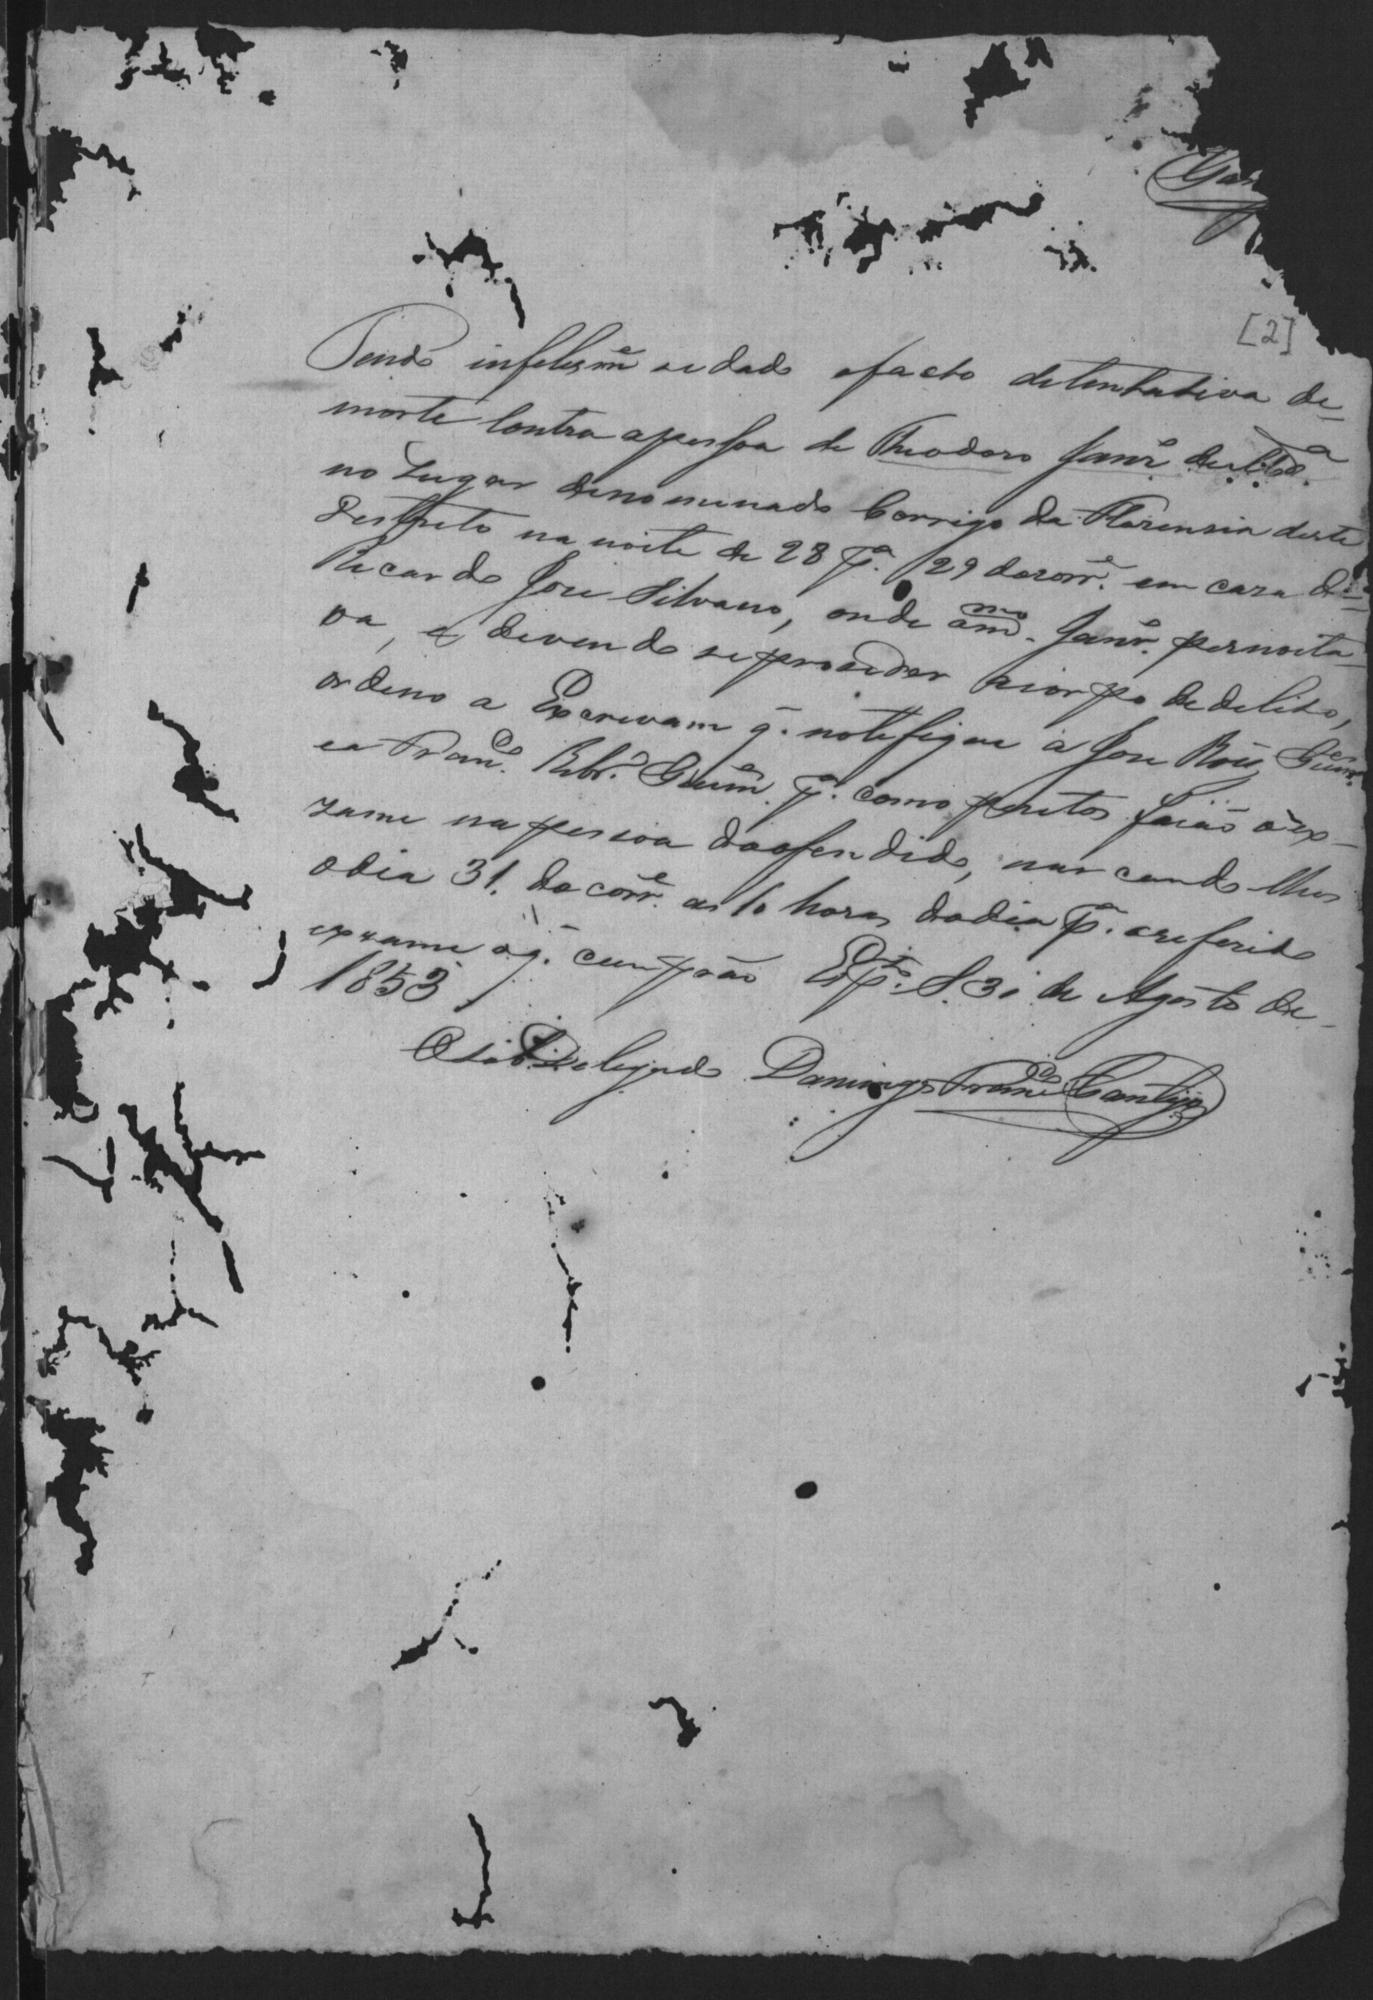 Gar
[2]
Tendo infelesme se dado o facto detentativa de
morte Contra apessoa de Theodoro Janr.o
no Lugar denominado Corrigo da Florensia deste
Destreto na noite de 28 p.a 29 docorr.e em caza de
Ricardo Jose Silvano, onde om.mo Janr.o pernoita
va, e devendo se proseder acorpo dedelito,
ordeno a Escrevam q. notefique a Jose Roiz Guim.es
ea Fran.co Ribr.o Guim.es p.a como peritos fação o ex
zame na pesoa do ofendido, marcando lhes
odia 31. do corr.e as 10 horas dodia p.a oreferido
exzame o q. cumprão S. 30 de Agosto de
1853
O Sub Delegado Domingos Fran.co Cantijo